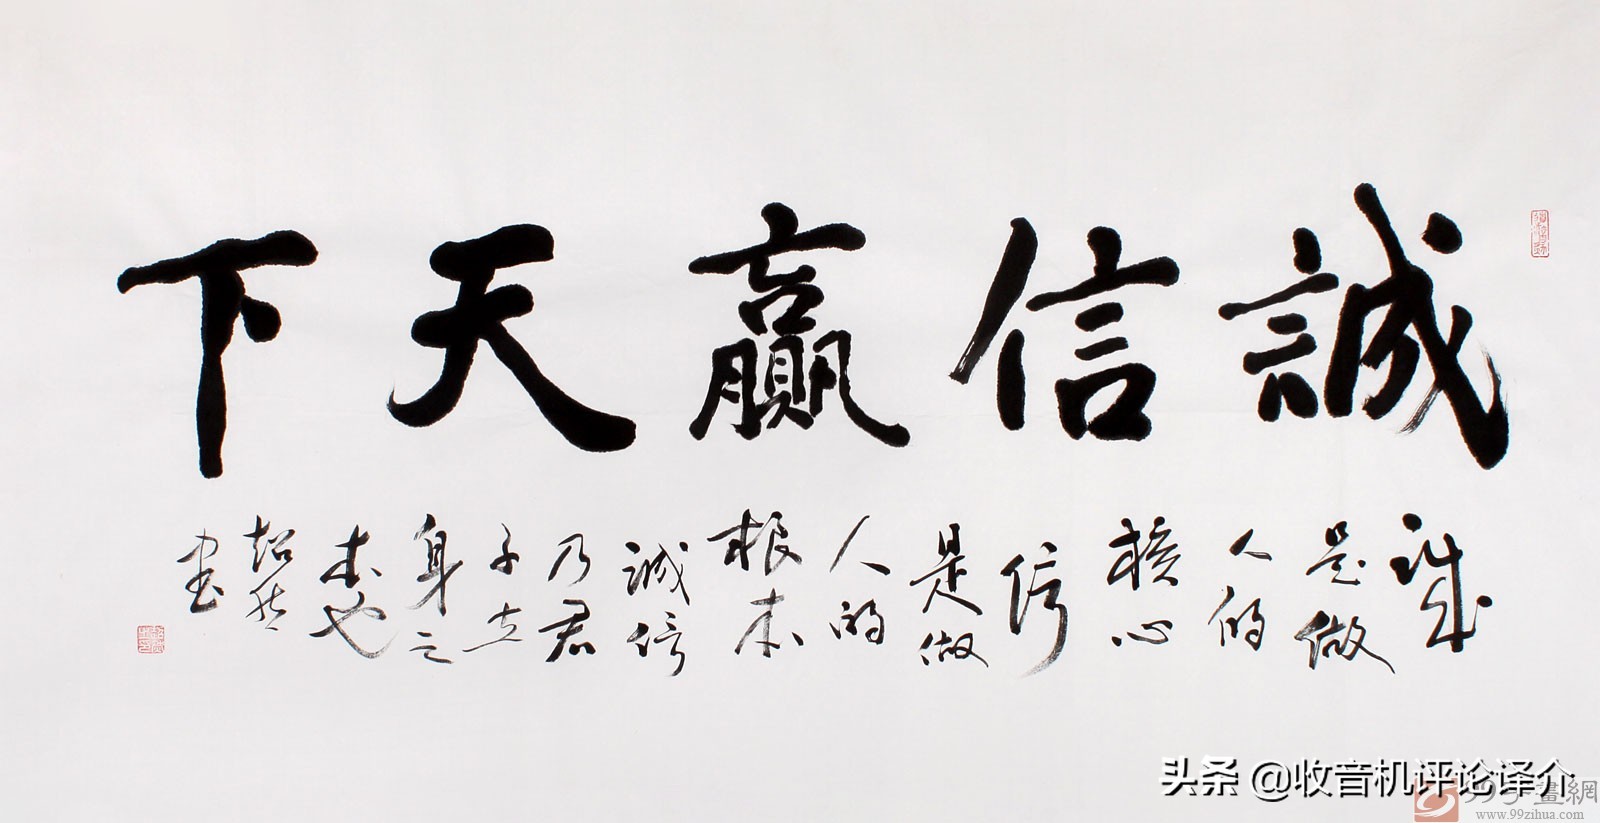 誠信贏天下
誠
是做
人的
核心
信
是做
人的
根本
誠信
乃君
子立
身之
本也
超然
书
头条 @收音机评论译介
畫網
www.99zihua.com